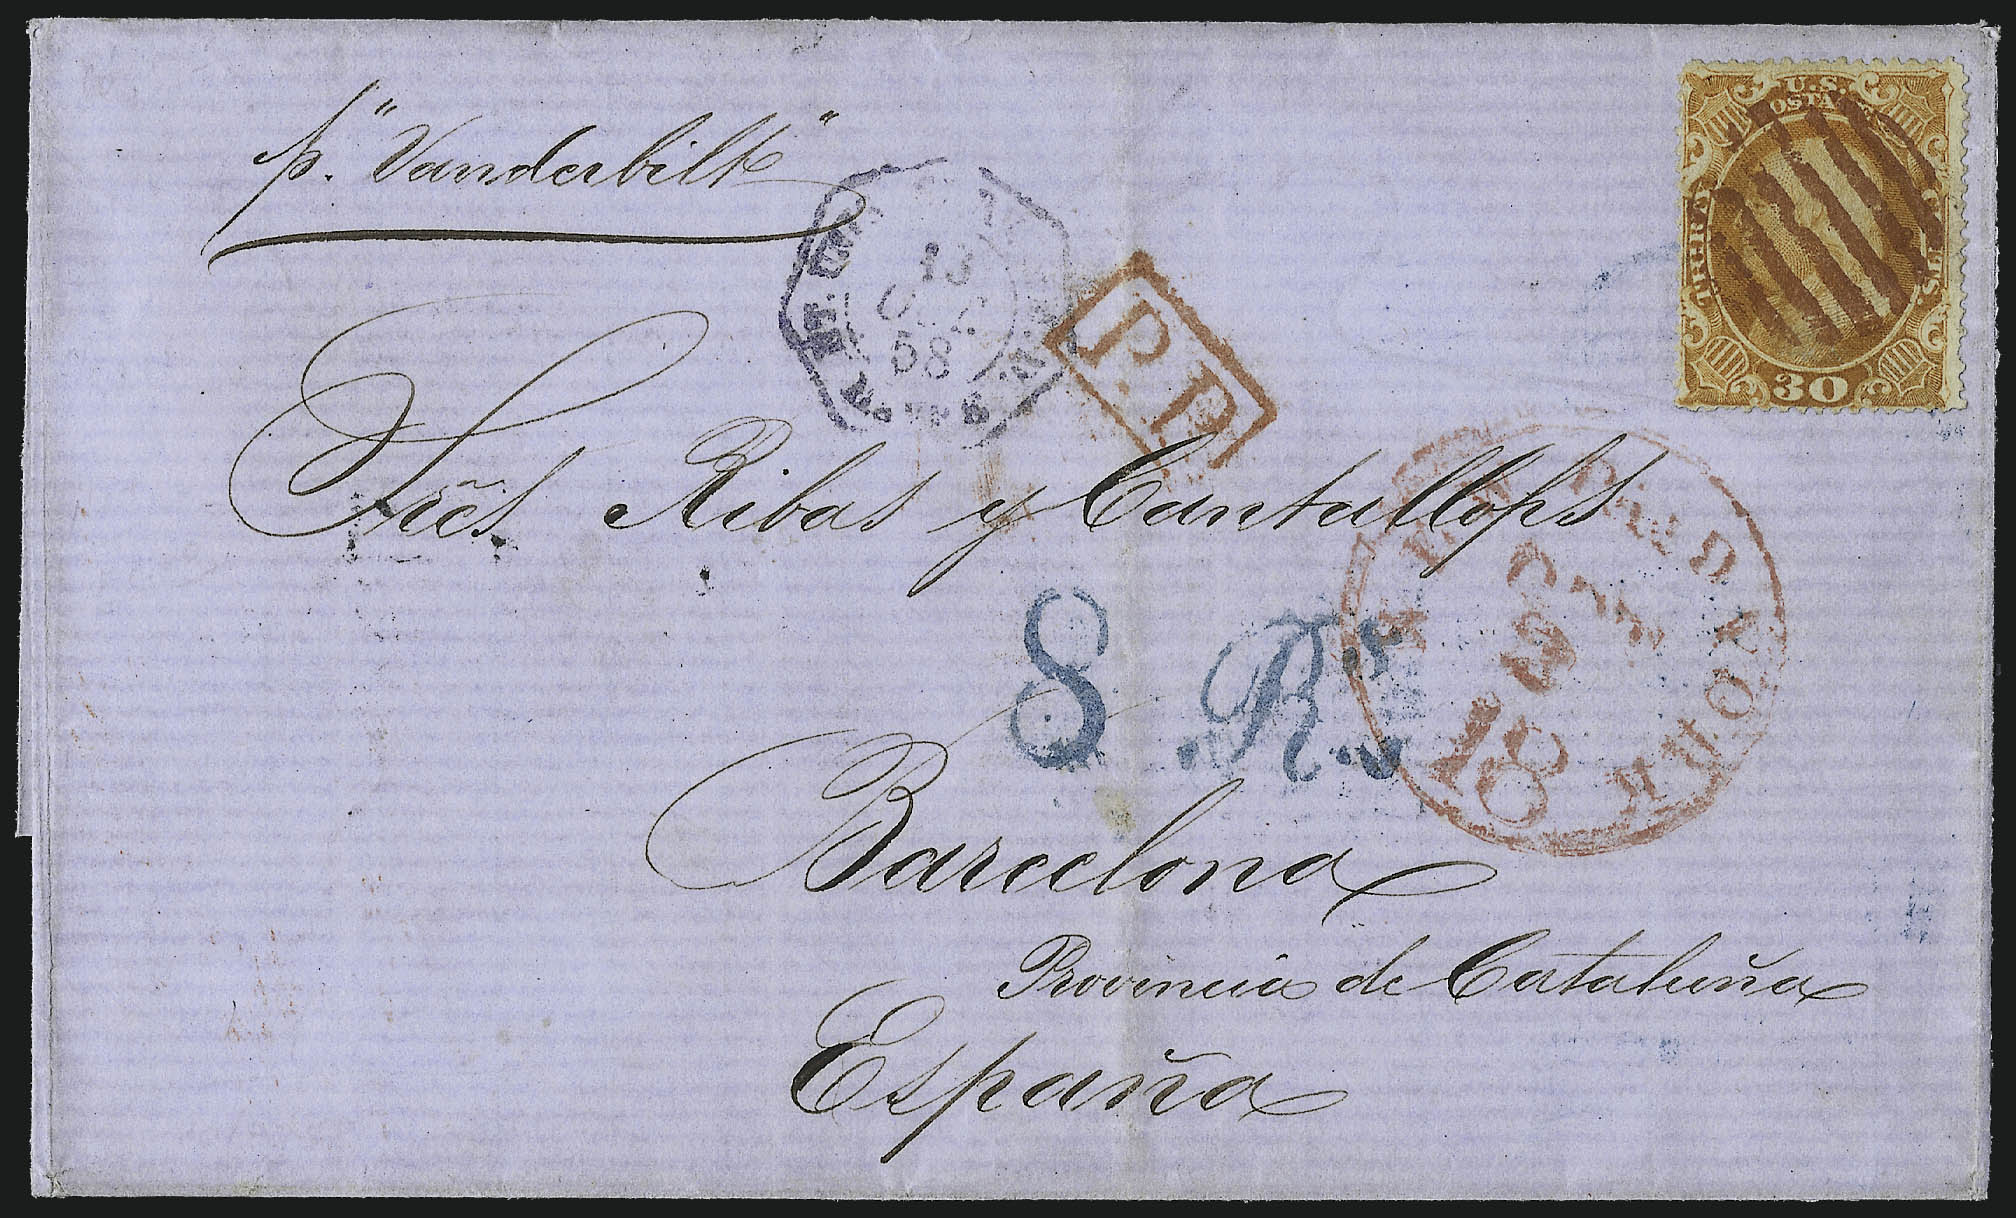 p. "Vanderbilt"
U.S.
OSTA
30
13
OCT.
58
P.P.
Sñes. Ribas y Cantallops
NEW PAID YORK
OCT
9
18
8 Rs.
Barcelona
Provincia de Cataluña
España